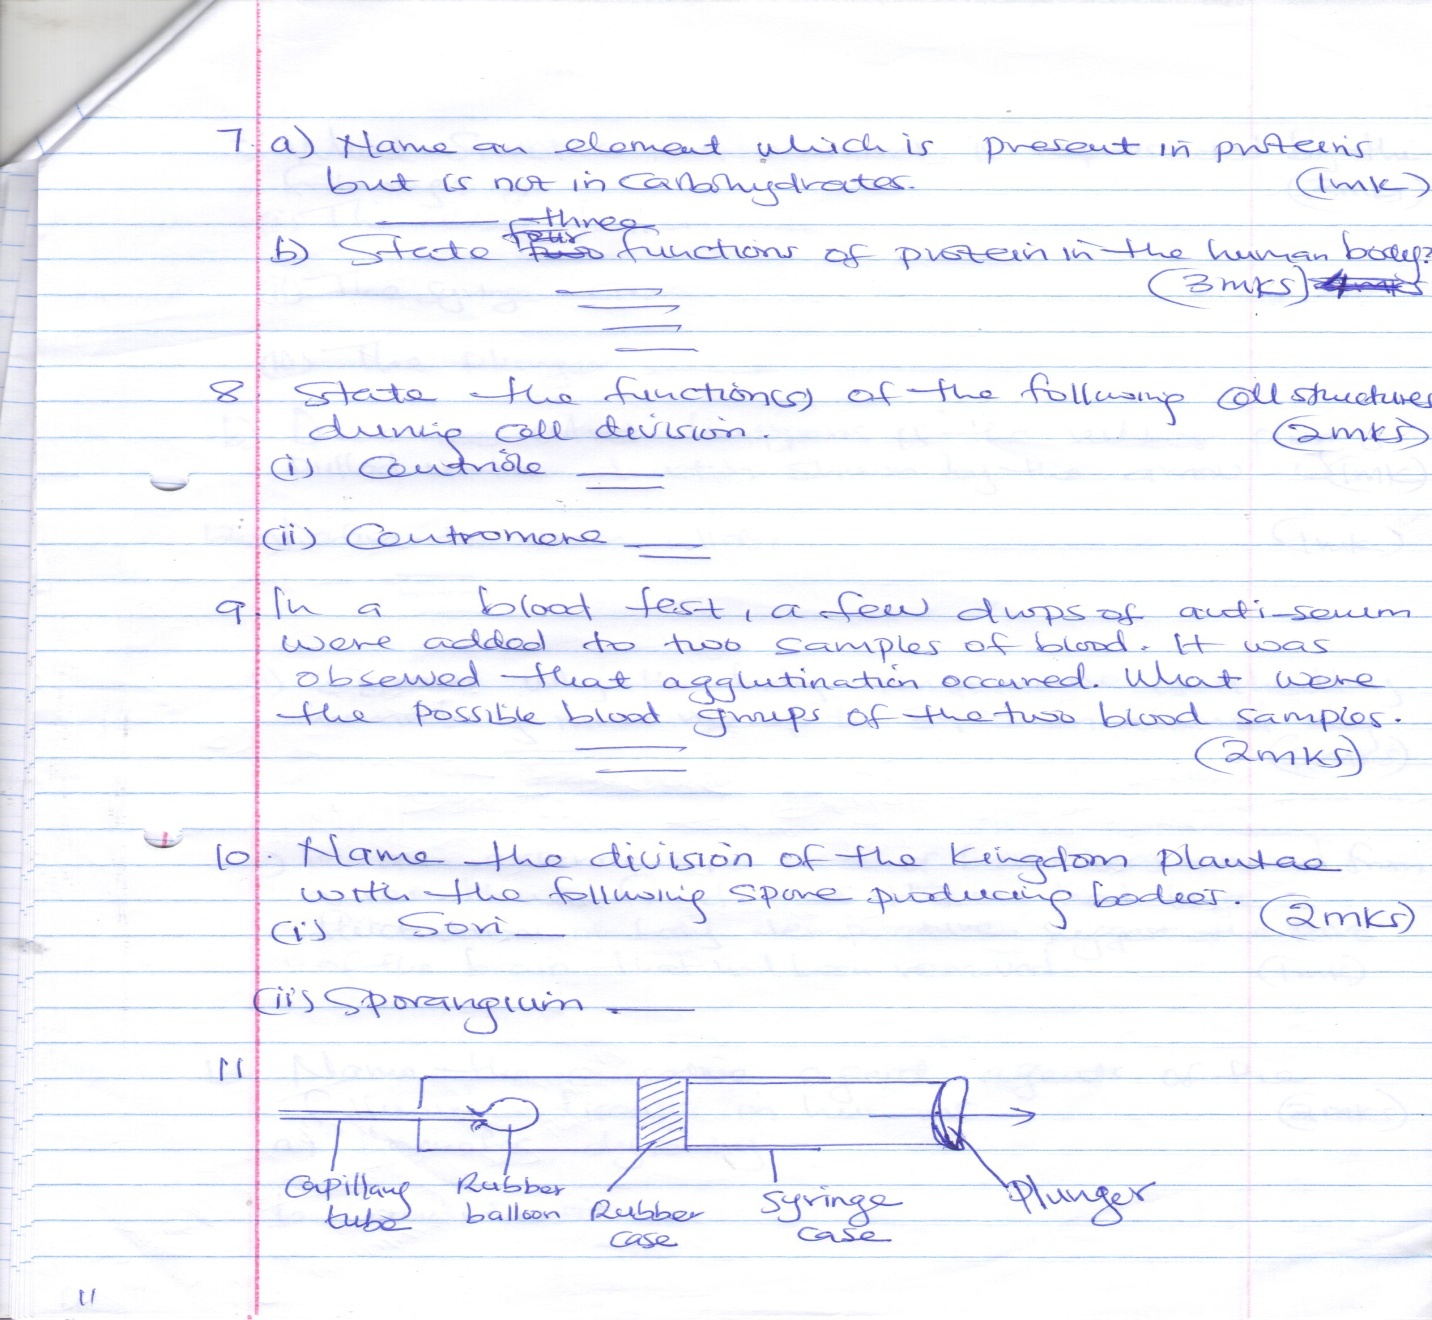 7. a) Name an element which is present in proteins
but is not in Carbohydrates. (1mk)
three
four
b) State two functions of protein in the human body?
(3mks) 4mks
8. State the function(s) of the following cell structures
during cell division. (2mks)
(i) Centriole
(ii) Centromere
9. In a blood test, a few drops of anti-serum
were added to two samples of blood. It was
observed that agglutination occured. What were
the possible blood groups of the two blood samples.
(2mks)
10. Name the division of the Kingdom plantae
with the following spore producing bodies. (2mks)
(i) Sori
(ii) Sporangium
11
Capillary tube
Rubber balloon
Rubber case
Syringe case
Plunger
11